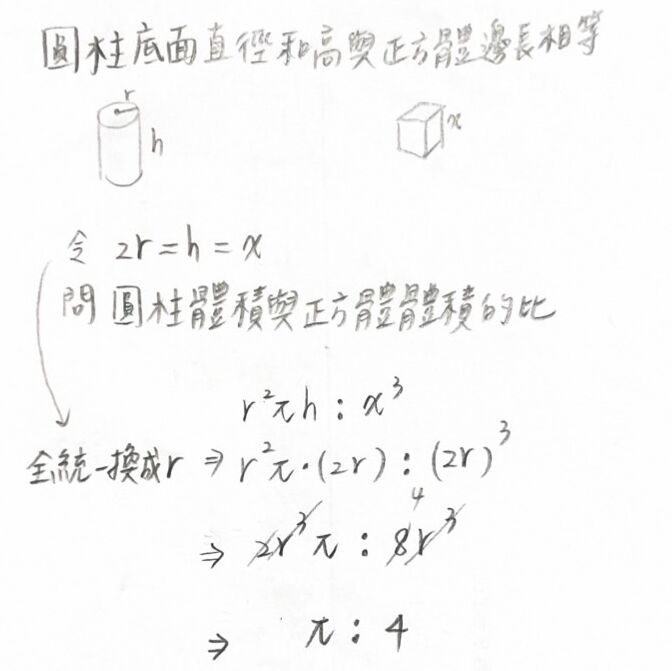 圓柱底面直徑和高與正方體邊長相等
r
h
x
令 2r=h=x
問圓柱體積與正方體體積的比
r²πh : x³
全統一換成r ⇒ r²π·(2r) : (2r)³
4
⇒ 2r³π : 8r³
⇒ π : 4